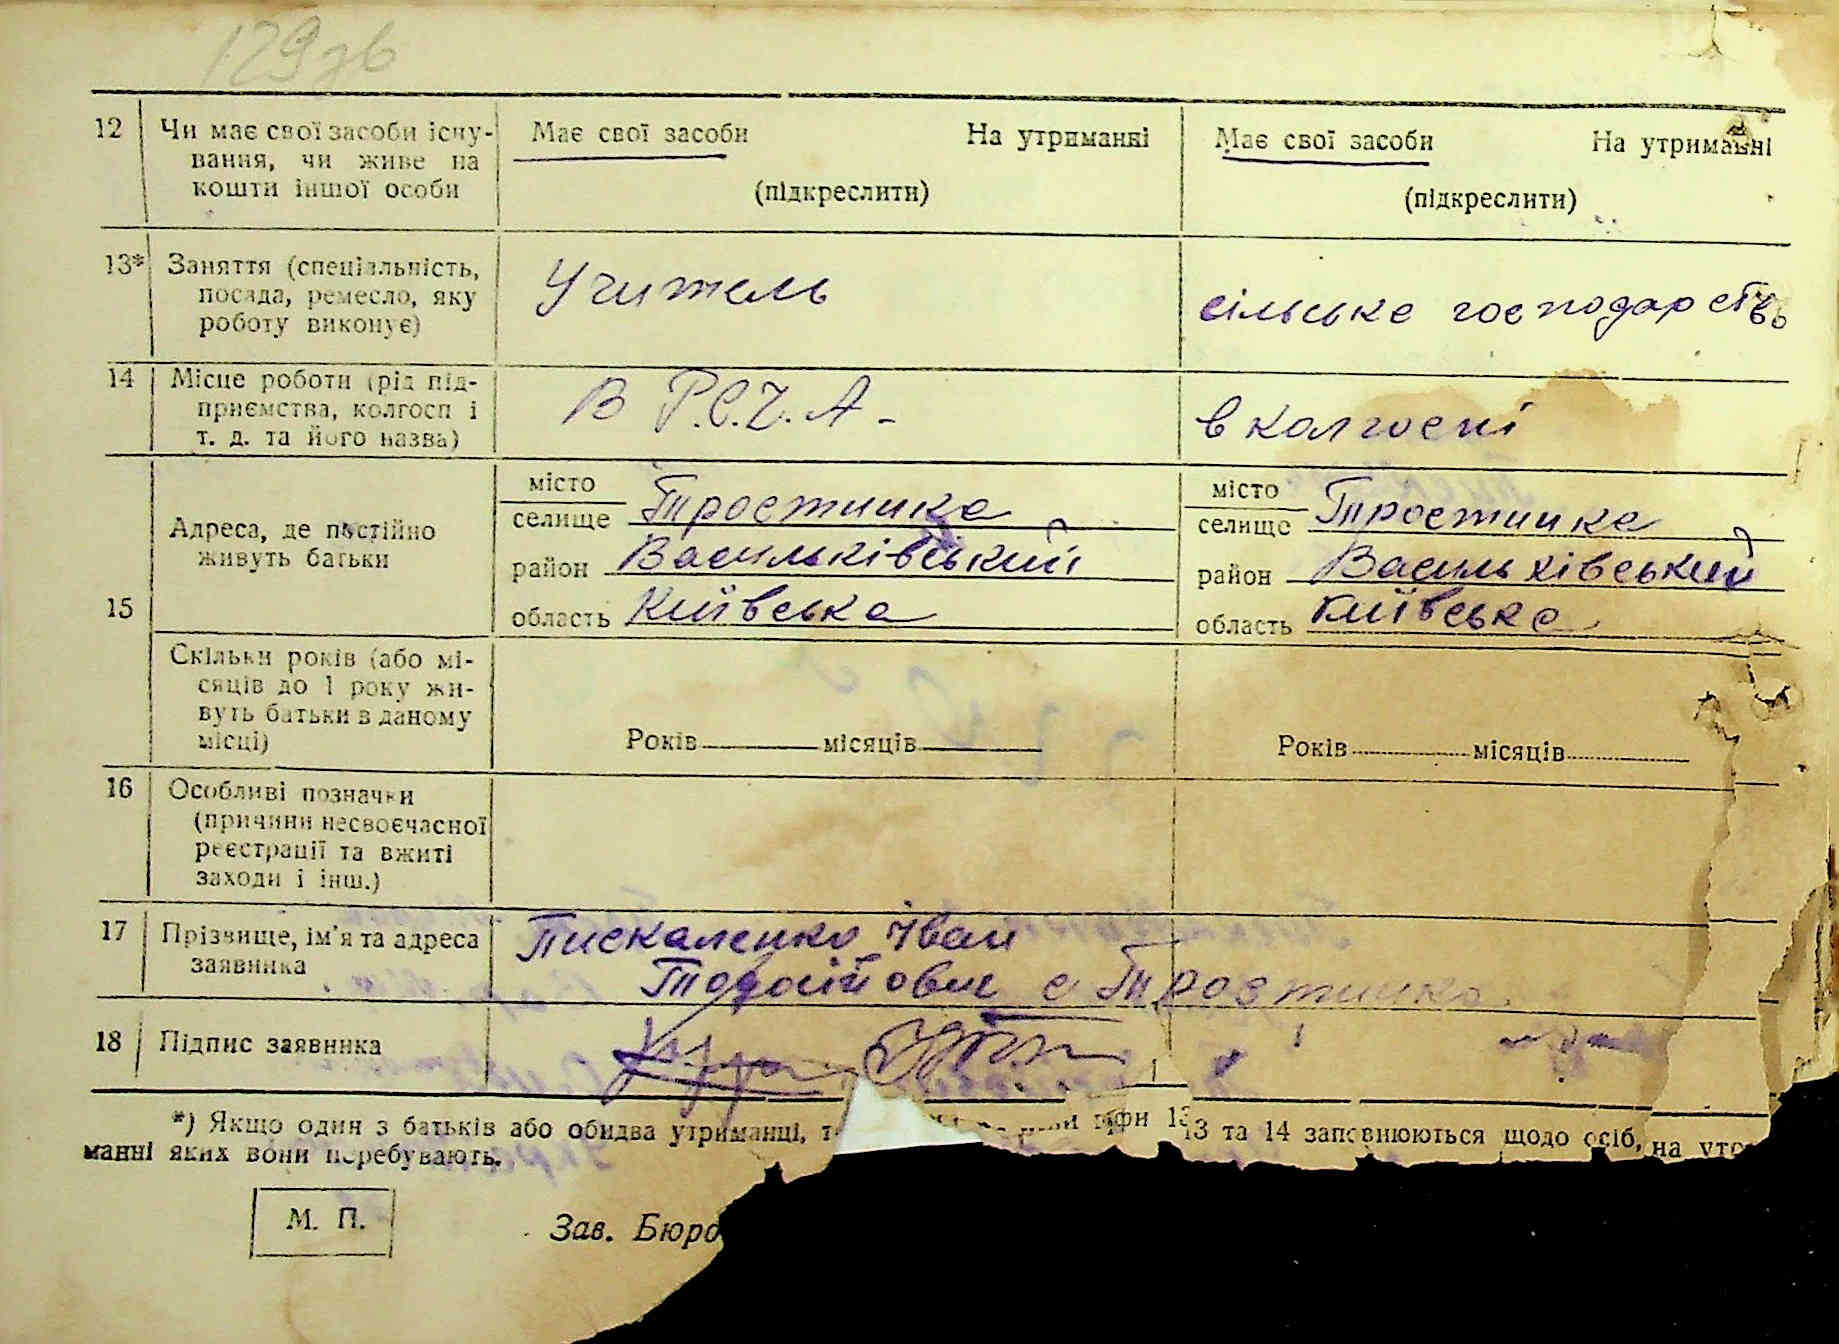 129зв
12 Чи має свої засоби існу- Має свої засоби На утриманні Має свої засоби На утриманні
вання, чи живе на
кошти іншої особи (підкреслити) (підкреслити)
13* Заняття (спеціальність, Учитель сільське господарство
посада, ремесло, яку
роботу виконує)
14 Місце роботи (рід під- В Р.С.Ч.А. - в колгоспі
приємства, колгосп і
т. д. та його назва)
місто місто
селище Тростинка селище Тростинка
Адреса, де постійно
живуть батьки
район Васильківський район Васильківський
15
область Київська область Київська
Скільки років (або мі-
сяців до 1 року жи-
вуть батьки в даному
місці) Років місяців Років місяців
16 Особливі позначки
(причини несвоєчасної
реєстрації та вжиті
заходи і інш.)
17 Прізвище, ім'я та адреса Пискаленко Іван
заявника Тодосійович с Тростинка
18 Підпис заявника
*) Якщо один з батьків або обидва утриманці, 13 та 14 заповнюються щодо осіб, на
манні яких вони перебувають.
М. П. Зав. Бюро